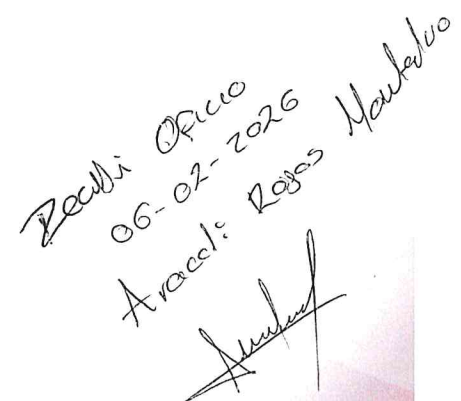 Recibí Oficio
06-02-2026
Araceli Rojas Montalvo